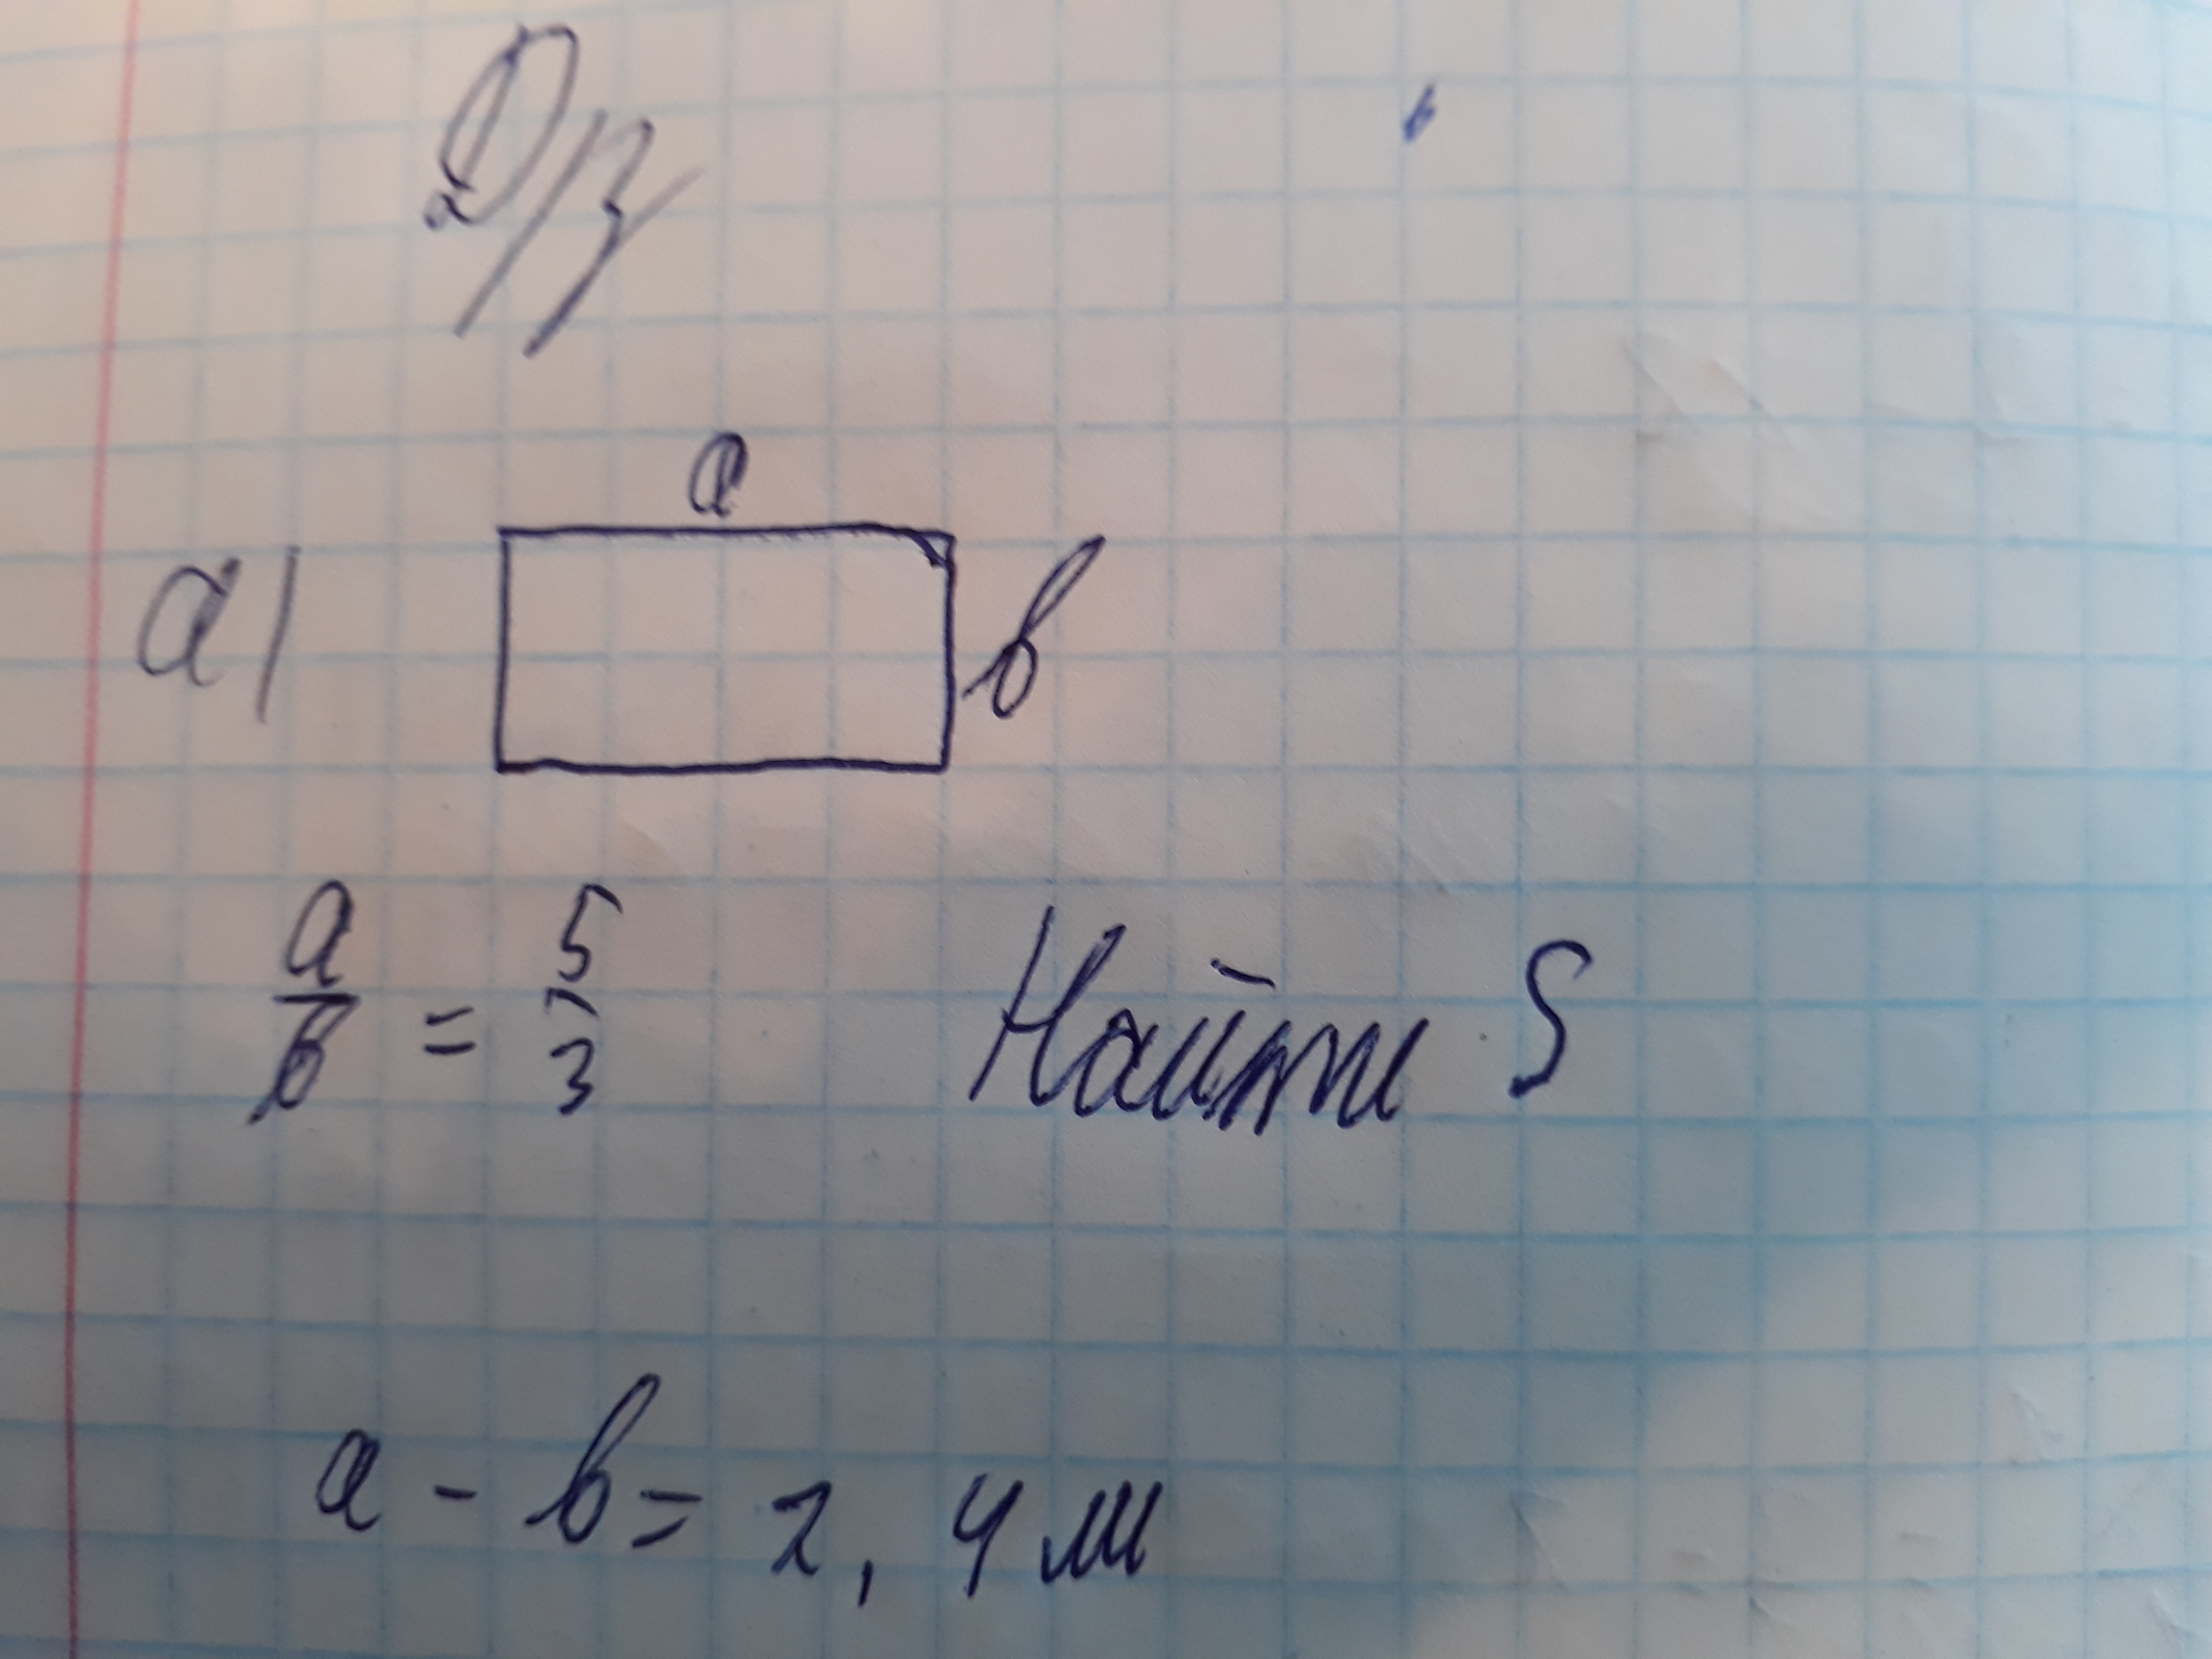 Д/з
а
а) в
а/в = 5/3 Найти S
а - в = 2,4 м